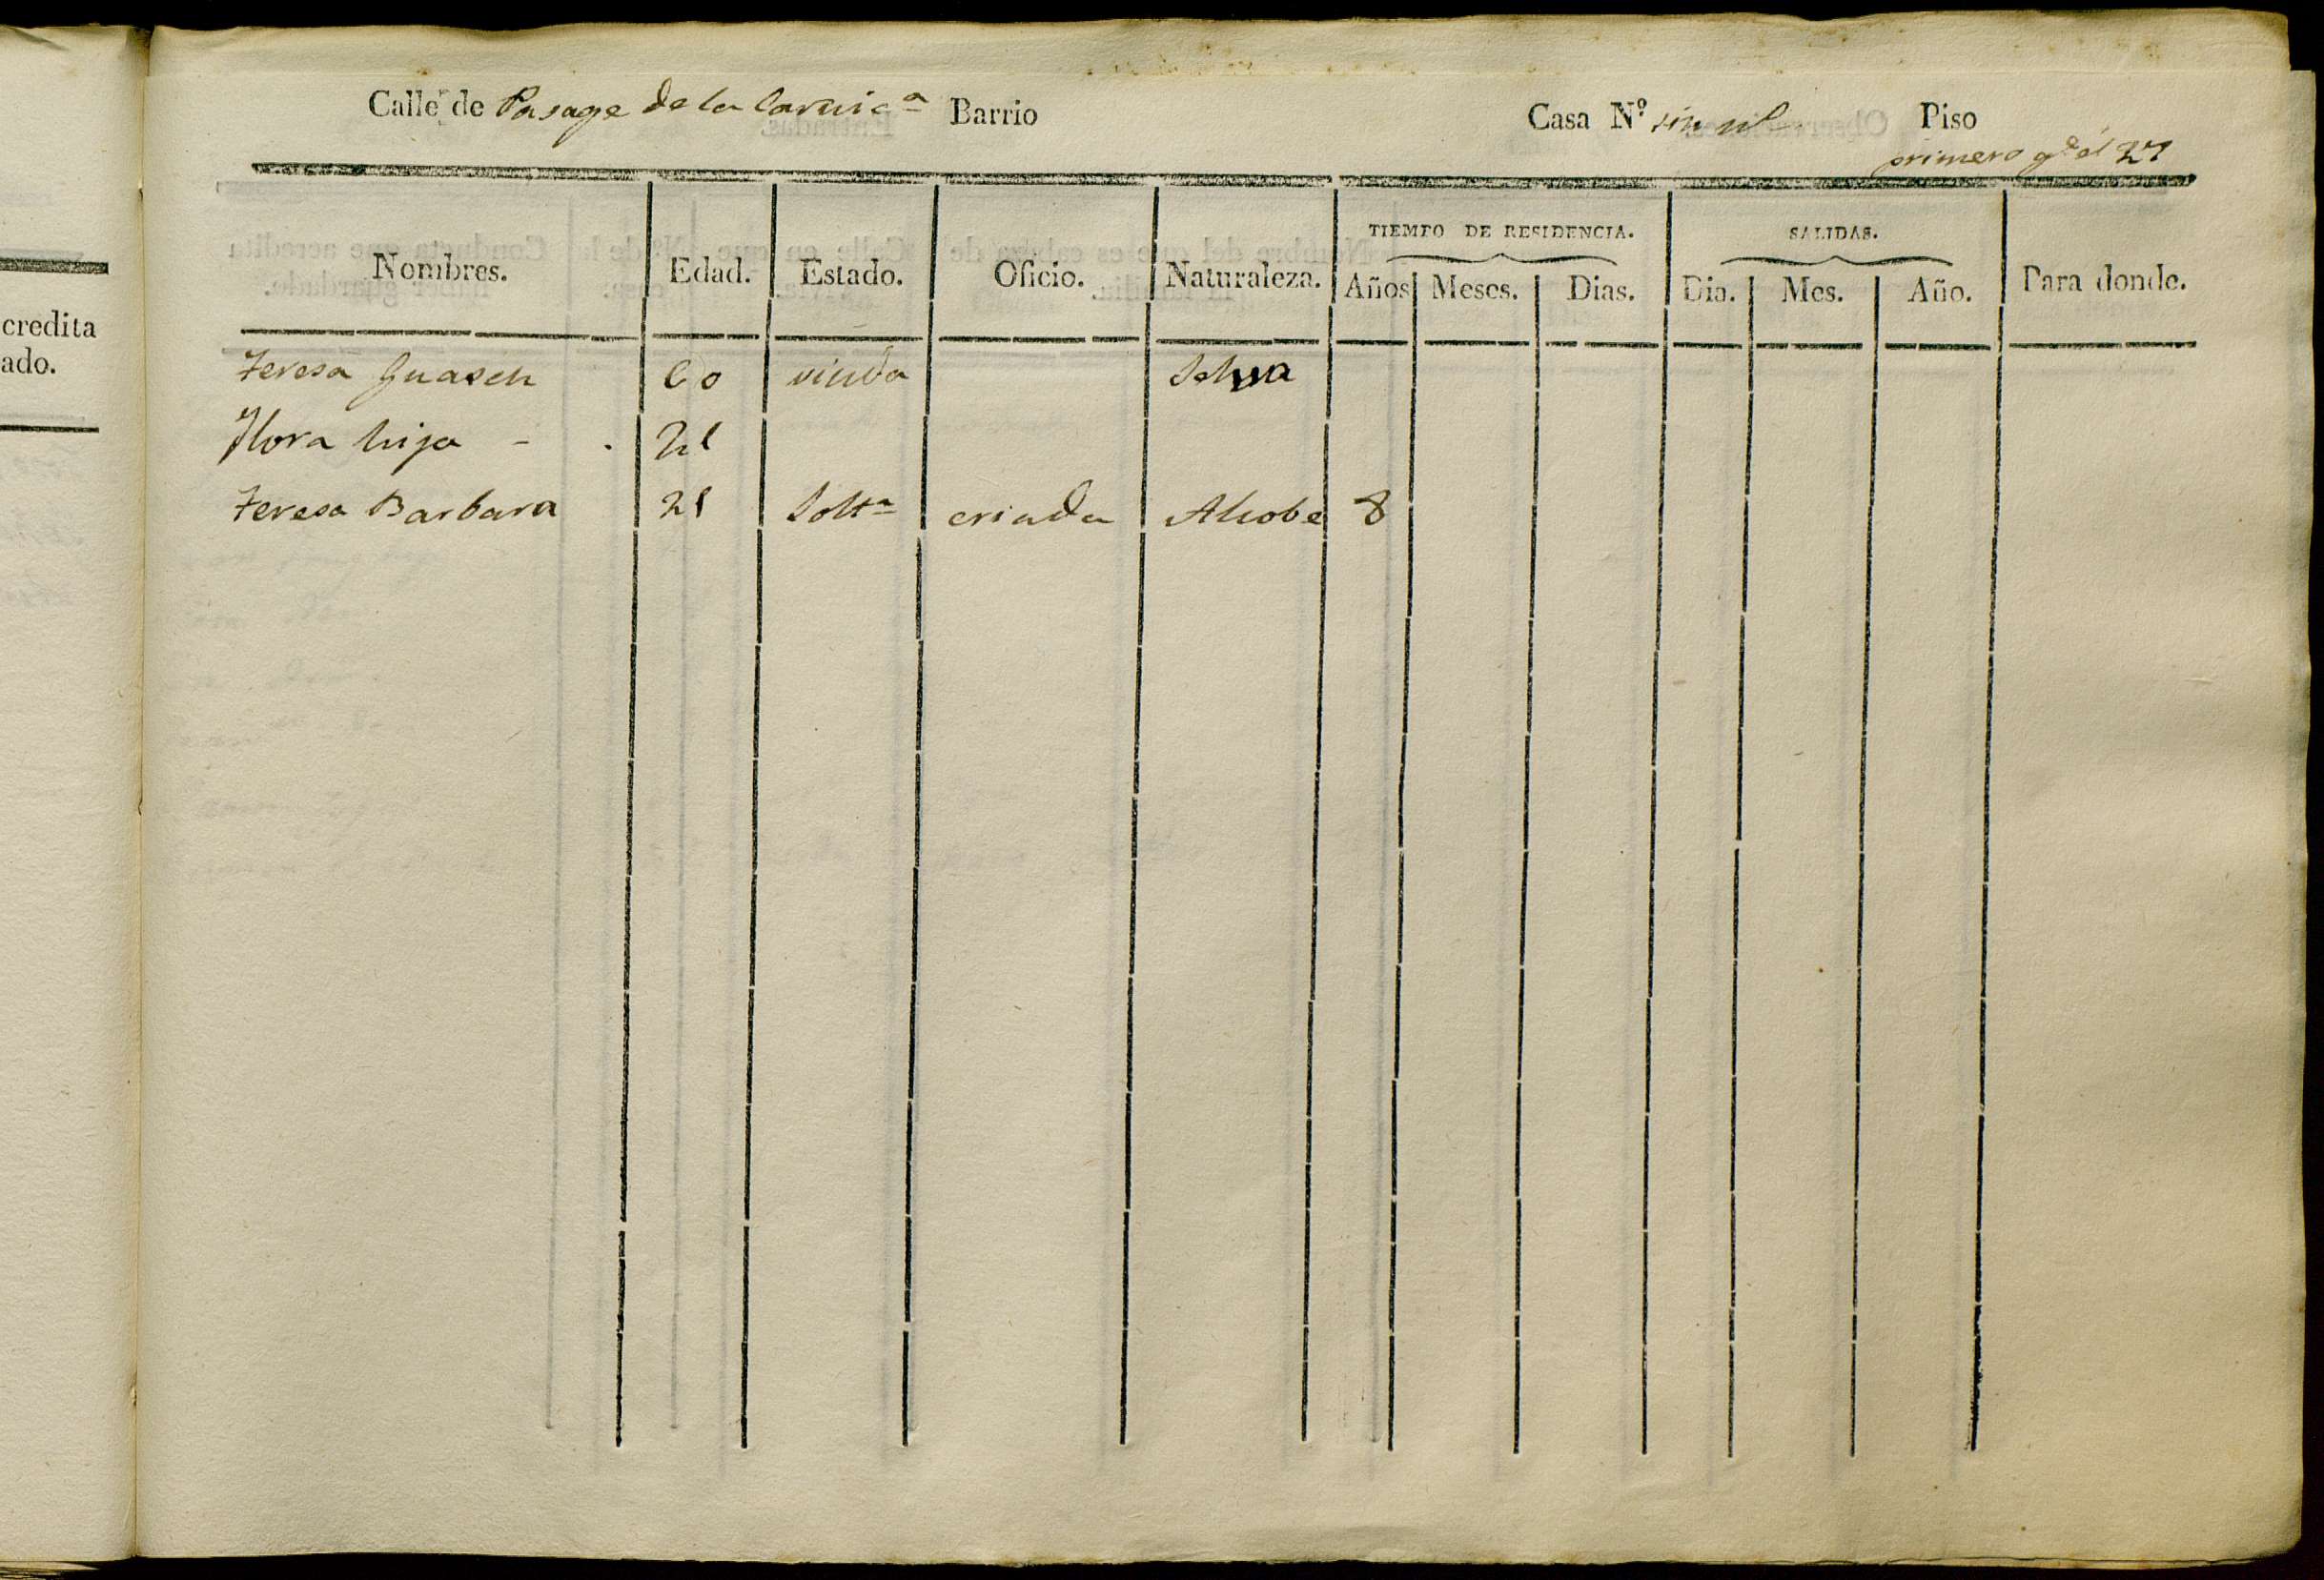 credita
ado.
Calle de Pasage de la Carnic.ª Barrio Casa N.º sin nº Piso
primero
TIEMPO DE RESIDENCIA. SALIDAS.
Nombres. Edad. Estado. Oficio. Naturaleza. Años Meses. Dias. Dia. Mes. Año. Para donde.
Teresa Guasch 60 viuda Selva
Flora hija -
Teresa Barbara 21 Solt.ª criada 8